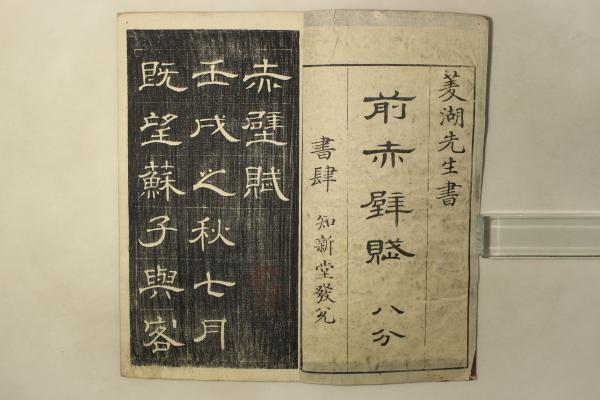 菱湖先生書
前赤壁賦 八分
書肆 知新堂發兌
赤壁賦
壬戌之秋七月
既望蘇子與客